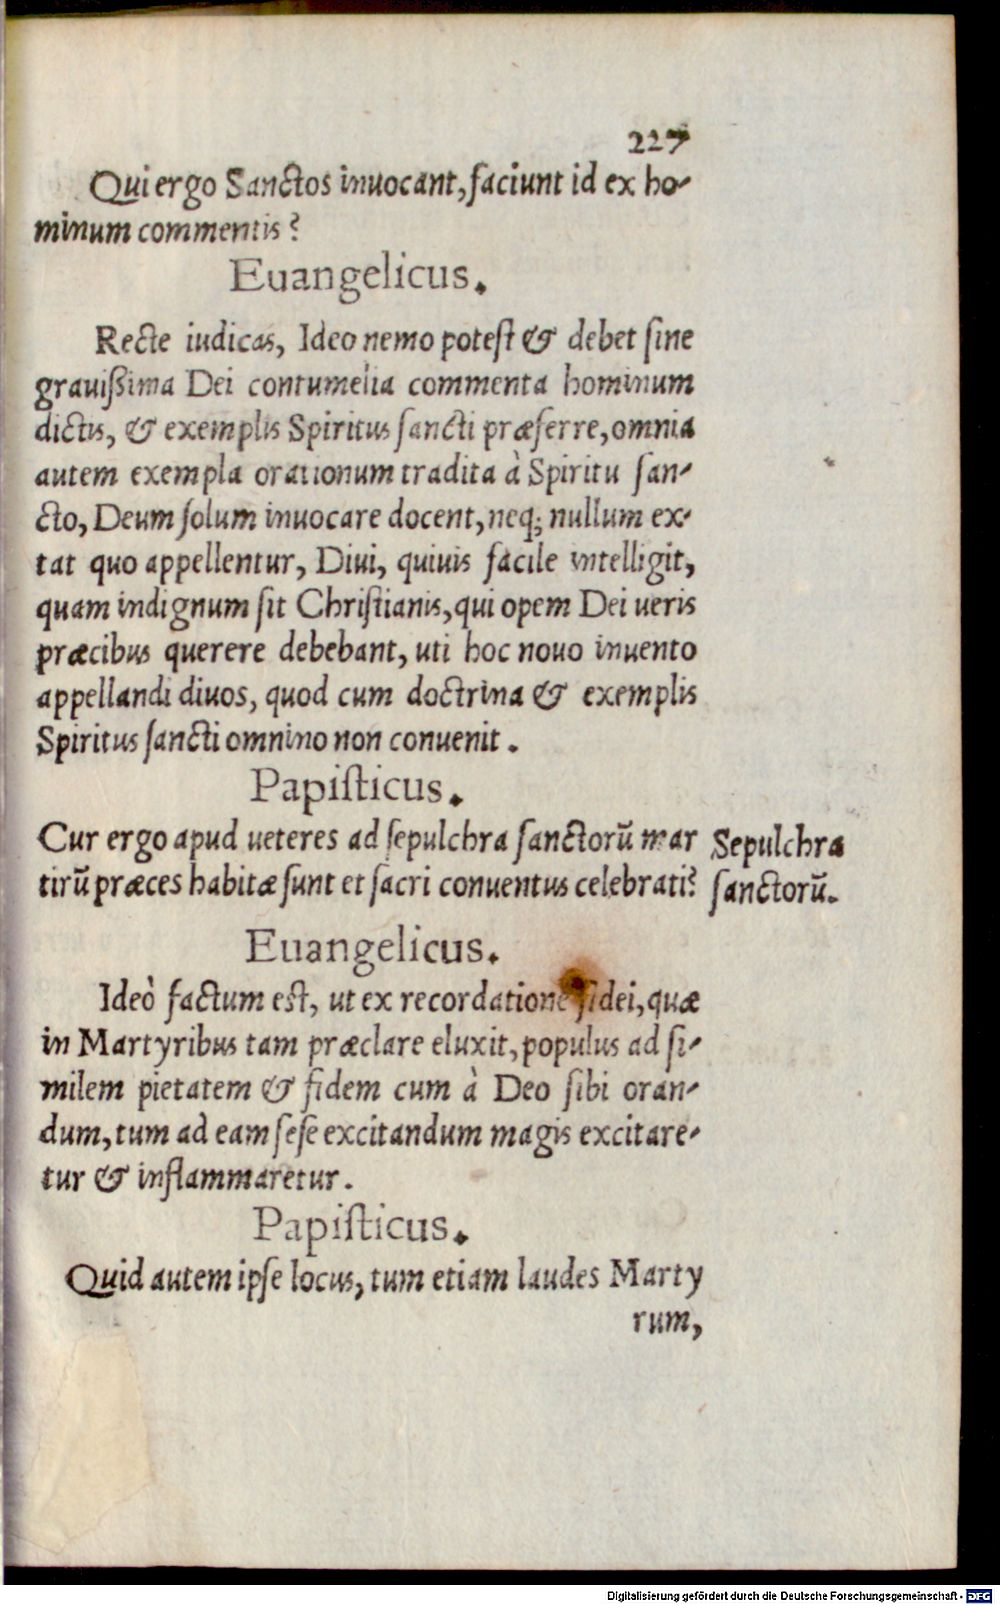 227
Qui ergo Sanctos inuocant, faciunt id ex ho-
minum commentis?
Euangelicus.
Recte iudicas, Ideo nemo potest & debet sine
grauißima Dei contumelia commenta hominum
dictis, & exemplis Spiritus sancti præferre, omnia
autem exempla orationum tradita à Spiritu san-
cto, Deum solum inuocare docent, neq; nullum ex-
tat quo appellentur, Diui, quiuis facile intelligit,
quam indignum sit Christianis, qui opem Dei ueris
præcibus querere debebant, uti hoc nouo inuento
appellandi diuos, quod cum doctrina & exemplis
Spiritus sancti omnino non conuenit.
Papisticus.
Cur ergo apud ueteres ad sepulchra sanctorũ mar
tirũ præces habitæ sunt et sacri conuentus celebrati?
Sepulchra
sanctorũ.
Euangelicus.
Ideò factum est, ut ex recordatione fidei, quæ
in Martyribus tam præclare eluxit, populus ad si-
milem pietatem & fidem cum à Deo sibi oran-
dum, tum ad eam sese excitandum magis excitare-
tur & inflammaretur.
Papisticus.
Quid autem ipse locus, tum etiam laudes Marty
rum,
Digitalisierung gefördert durch die Deutsche Forschungsgemeinschaft - DFG